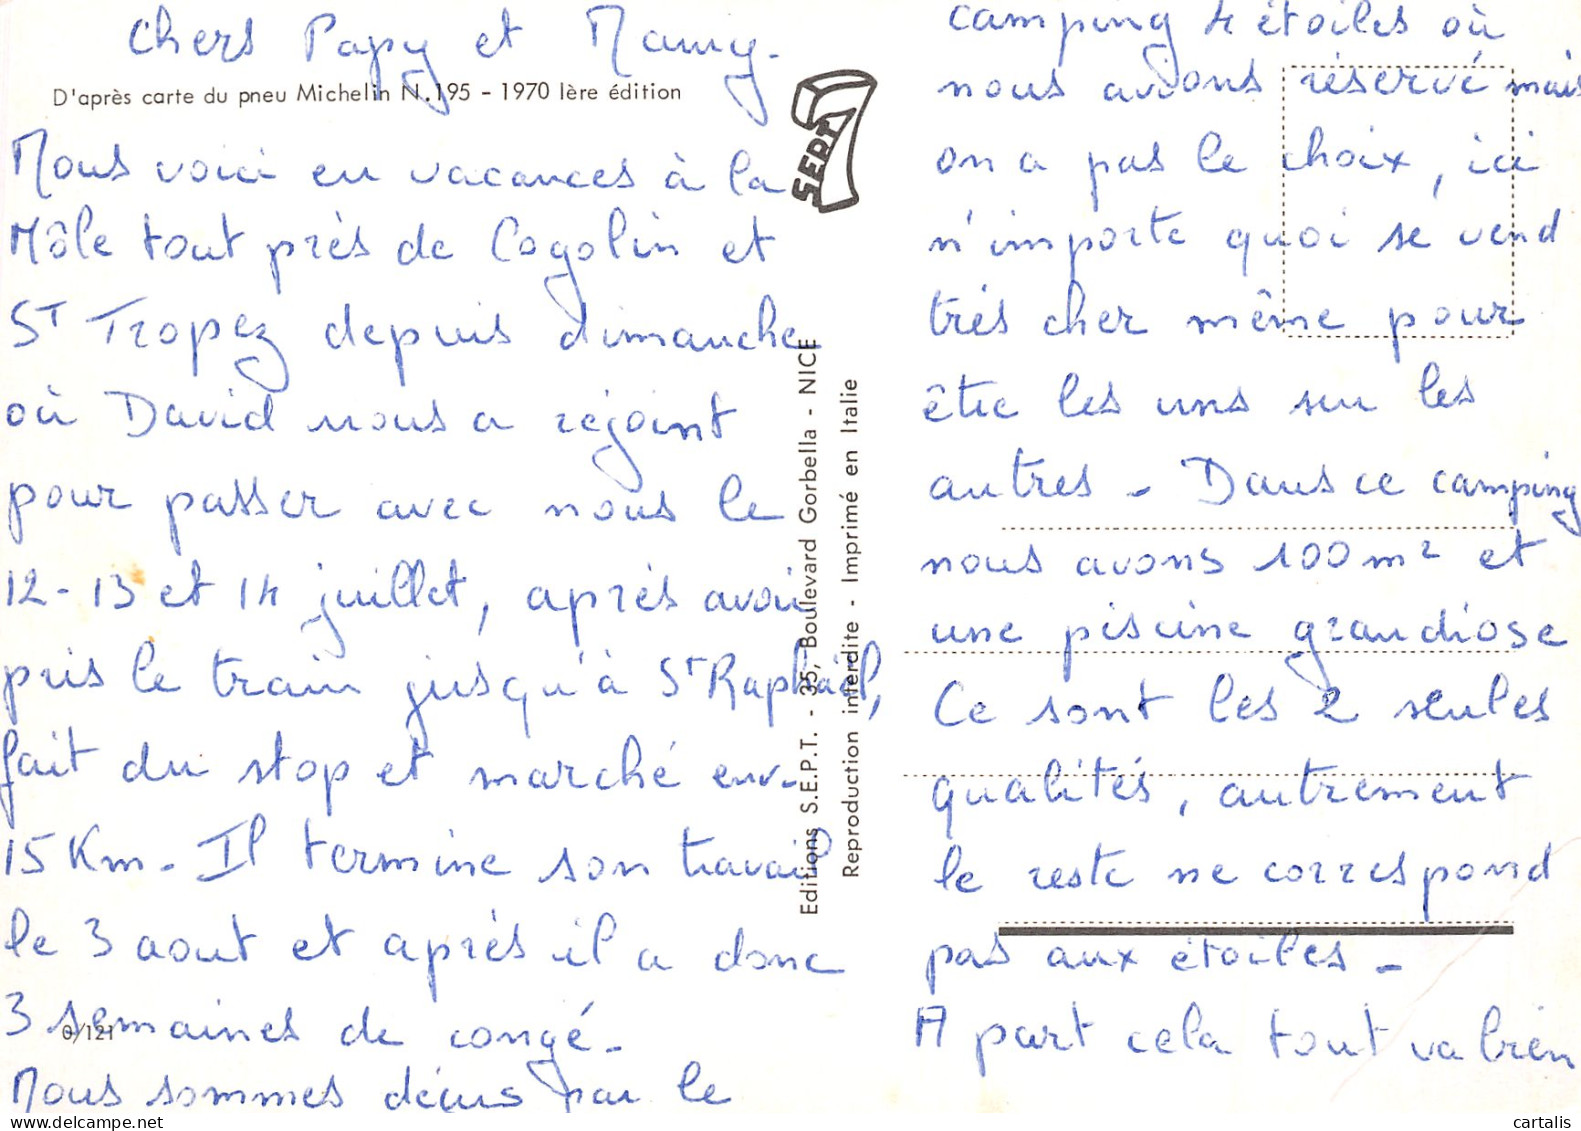 Chers Papy et Mamy.
D'après carte du pneu Michelin N.195 - 1970 1ère édition
Nous voici en vacances à la
Môle tout près de Cogolin et
St Tropez depuis dimanche
où David nous a rejoint
pour passer avec nous le
12-13 et 14 juillet, après avoir
pris le train jusqu'à St Raphaël,
fait du stop et marché env.
15 Km. Il termine son travail
le 3 aout et après il a donc
3 semaines de congé.
0/121
Nous sommes déçus par le
SEPT
Editions S.E.P.T. - 35, Boulevard Gorbella - NICE
Reproduction interdite - Imprimé en Italie
camping 4 étoiles où
nous avions réservé mais
on a pas le choix, ici
n'importe quoi se vend
très cher même pour
être les uns sur les
autres - Dans ce camping
nous avons 100 m² et
une piscine grandiose
Ce sont les 2 seules
qualités, autrement
le reste ne correspond
pas aux étoiles -
A part cela tout va bien
cartalis
www.delcampe.net